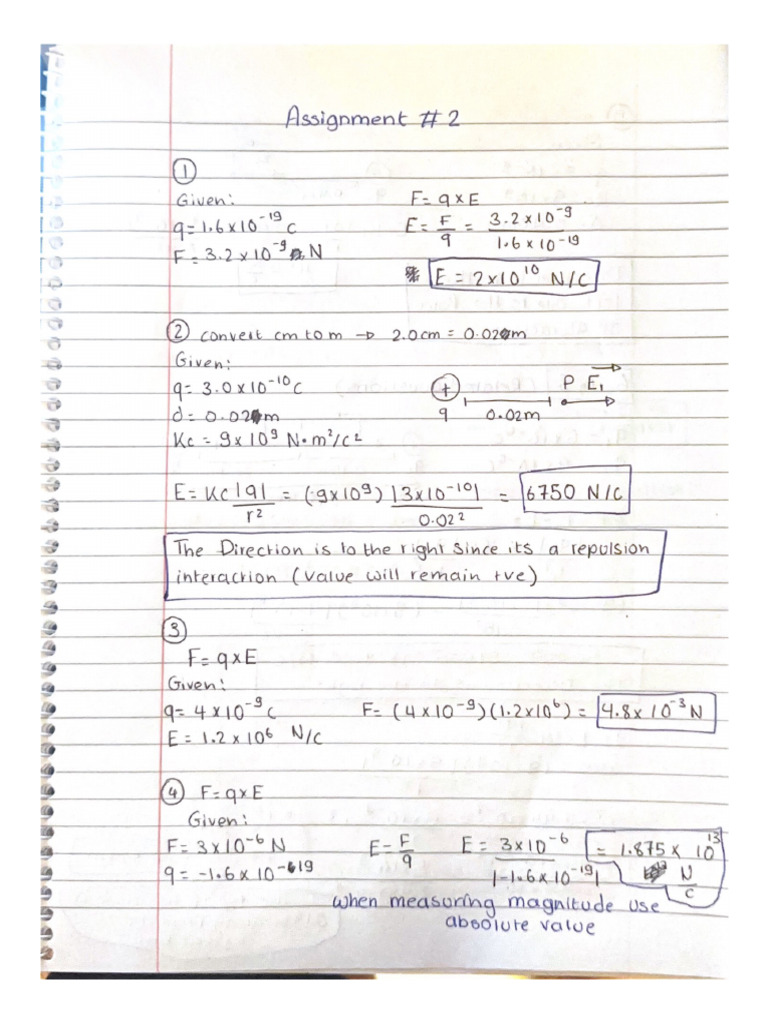 Assignment # 2
①
Given:
q = 1.6 x 10⁻¹⁹ C
F = 3.2 x 10⁻⁹ N
F = q x E
E = F/q = 3.2 x 10⁻⁹ / 1.6 x 10⁻¹⁹
E = 2 x 10¹⁰ N/C
② convert cm to m → 2.0cm = 0.02m
Given:
q = 3.0 x 10⁻¹⁰ C
d = 0.02m
Kc = 9 x 10⁹ N•m²/C²
+ P E₁
q 0.02m
E = Kc |q| / r² = (9x10⁹) |3x10⁻¹⁰| / 0.02² = 6750 N/C
The Direction is to the right since its a repulsion
interaction (value will remain +ve)
③
F = q x E
Given:
q = 4 x 10⁻⁹ C
E = 1.2 x 10⁶ N/C
F = (4 x 10⁻⁹)(1.2x10⁶) = 4.8 x 10⁻³ N
④ F = q x E
Given:
F = 3 x 10⁻⁶ N
q = -1.6 x 10⁻¹⁹
E = F/q
E = 3x10⁻⁶ / |-1.6 x 10⁻¹⁹| = 1.875 x 10¹³ N/C
when measuring magnitude use
absolute value